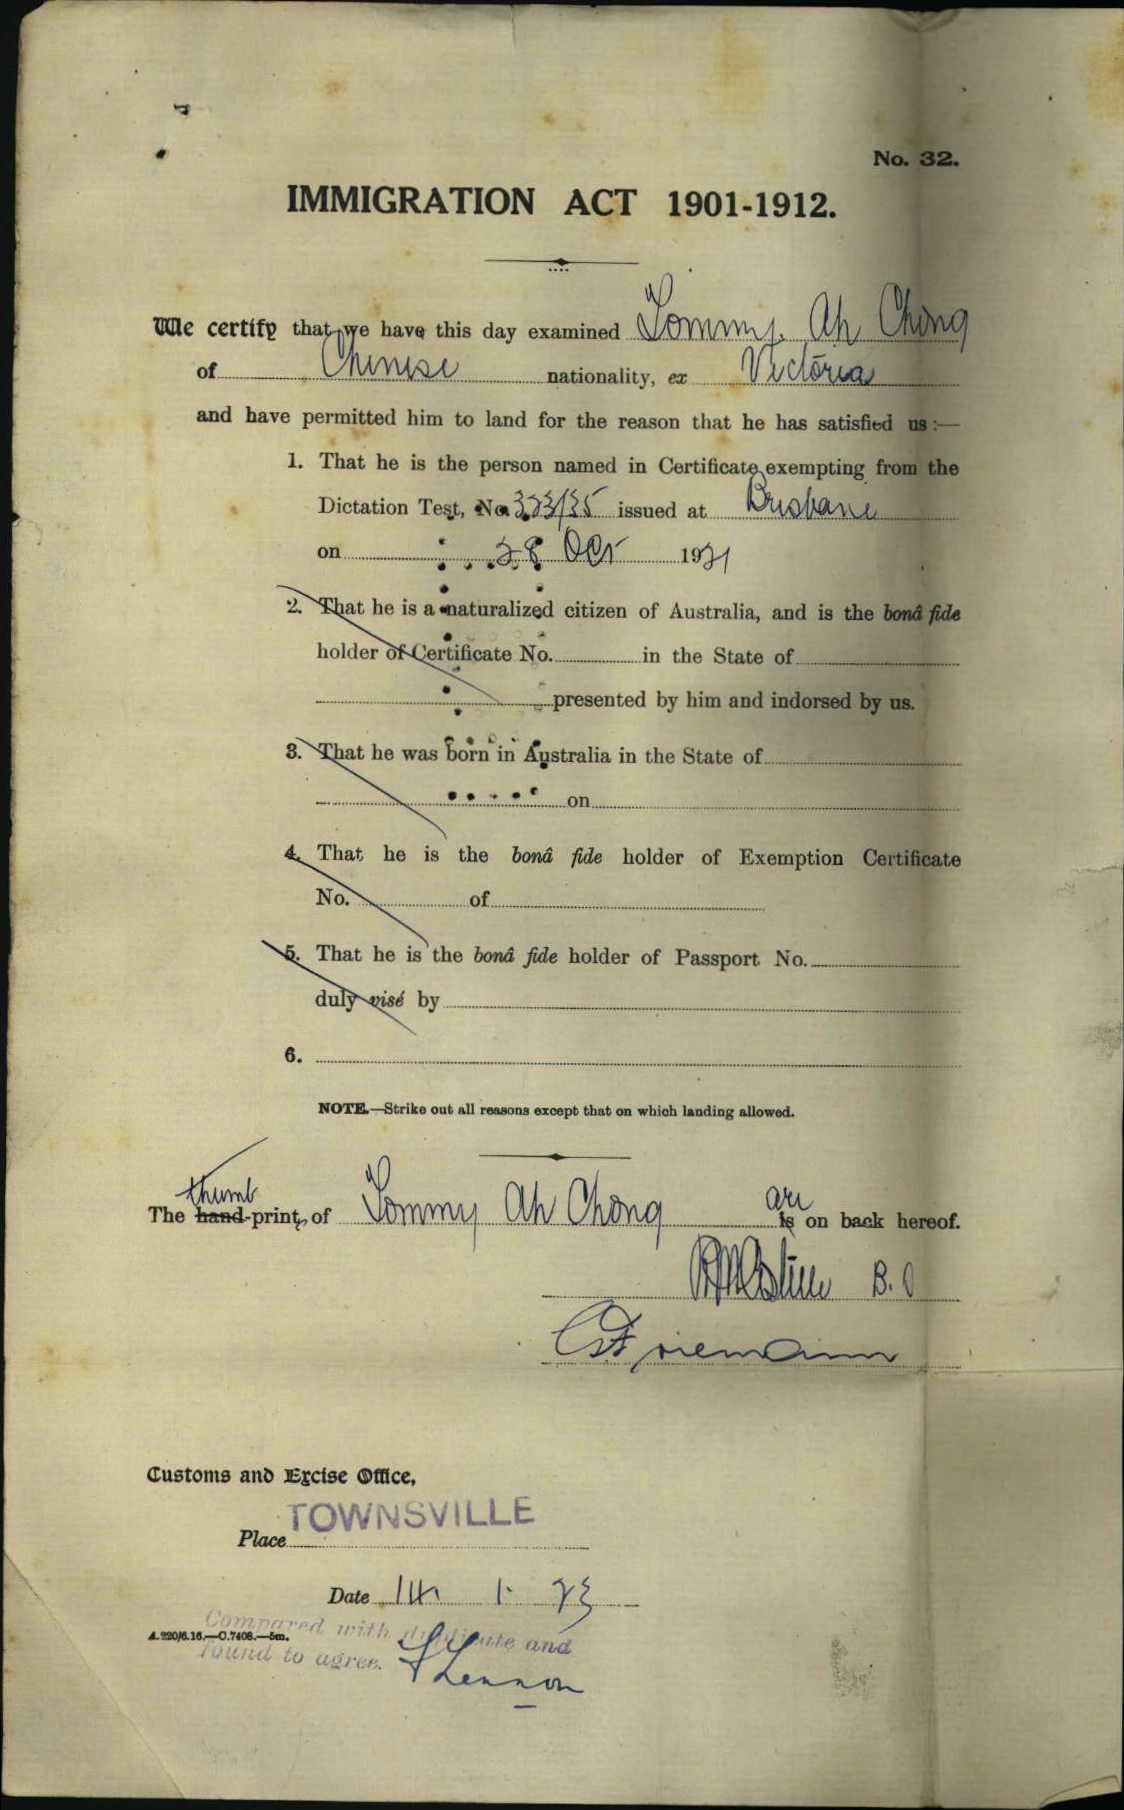 No. 32.
IMMIGRATION ACT 1901-1912.
We certify that we have this day examined Tommy Ah Chong
of Chinese nationality, ex Victoria
and have permitted him to land for the reason that he has satisfied us :—
1. That he is the person named in Certificate exempting from the
Dictation Test, No. 323/35 issued at Brisbane
on 28 Oct 1921
2. That he is a naturalized citizen of Australia, and is the bonâ fide
holder of Certificate No. in the State of
presented by him and indorsed by us.
3. That he was born in Australia in the State of
on
4. That he is the bonâ fide holder of Exemption Certificate
No. of
5. That he is the bonâ fide holder of Passport No.
duly visé by
6.
NOTE.—Strike out all reasons except that on which landing allowed.
thumb are
The hand-prints of Tommy Ah Chong is on back hereof.
B.O
Customs and Excise Office,
TOWNSVILLE
Place
Date 1 23
Compared with duplicate and
A.220/6.16.—C.7408.—5m.
found to agree.
Lennon